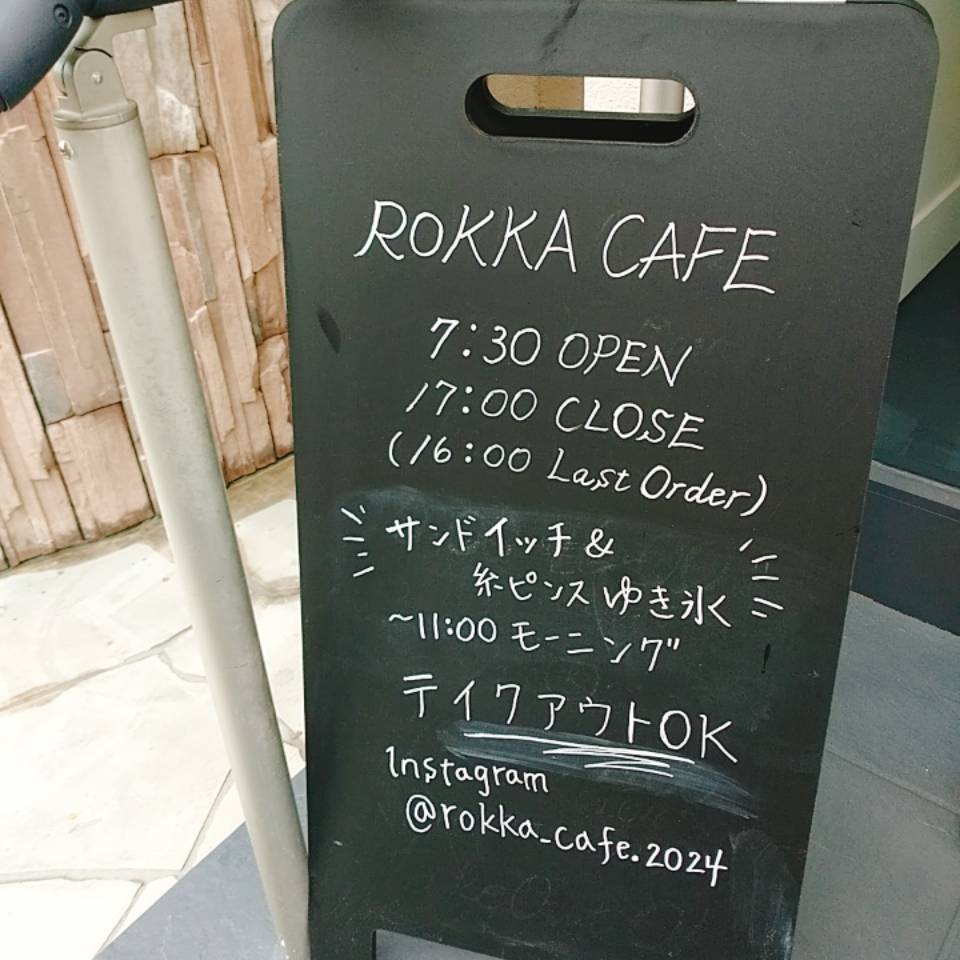 ROKKA CAFE
7:30 OPEN
17:00 CLOSE
(16:00 Last Order)
サンドイッチ &
糸ピンス ゆき氷く
~11:00 モーニング
テイクアウトOK
Instagram
@rokka_cafe.2024